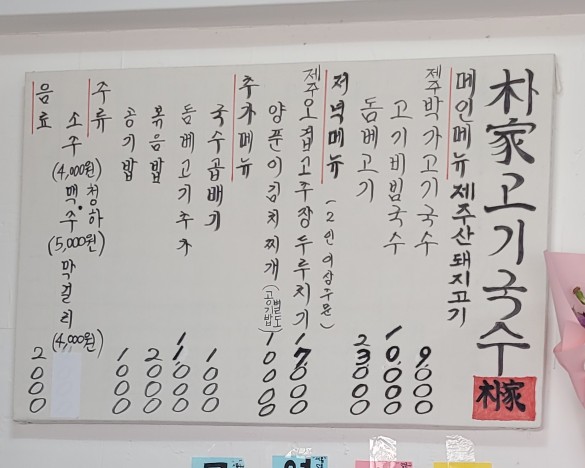 朴家고기국수
朴家
메인메뉴 제주산돼지고기
제주박가고기국수 9000
고기비빔국수 10000
돔베고기 23000
저녁메뉴 (2인이상주문)
제주오겹고추장두루치기 17000
양푼이김치찌개 (공기밥별도) 10000
추가메뉴
국수곱배기 1000
돔베고기추가 11000
볶음밥 2000
공기밥 1000
주류
청하
소주(4,000원) 맥주(5,000원) 막걸리(4,000원)
음료 2000